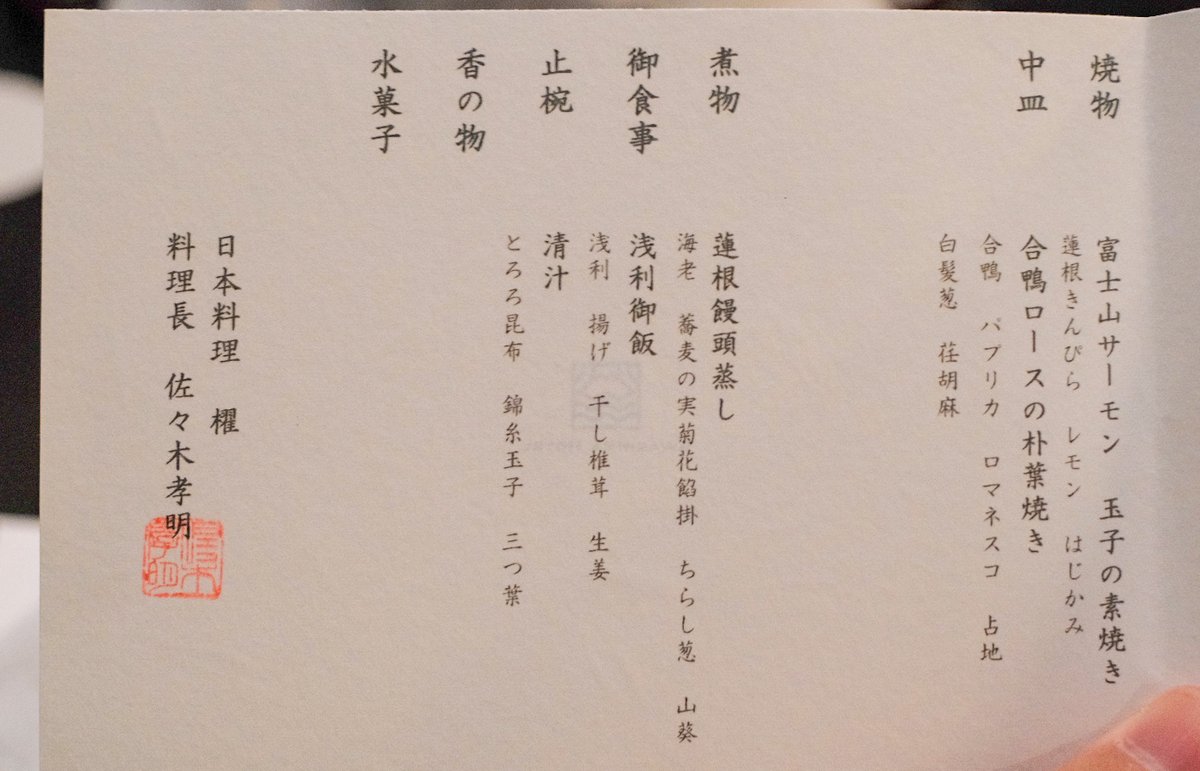 焼物　富士山サーモン　玉子の素焼き
蓮根きんぴら　レモン　はじかみ
中皿　合鴨ロースの朴葉焼き
合鴨　パプリカ　ロマネスコ　占地
白髪葱　荏胡麻
煮物　蓮根饅頭蒸し
海老　蕎麦の実菊花餡掛　ちらし葱　山葵
御食事　浅利御飯
浅利　揚げ　干し椎茸　生姜
止椀　清汁
とろろ昆布　錦糸玉子　三つ葉
香の物
水菓子
日本料理　櫂
料理長　佐々木孝明